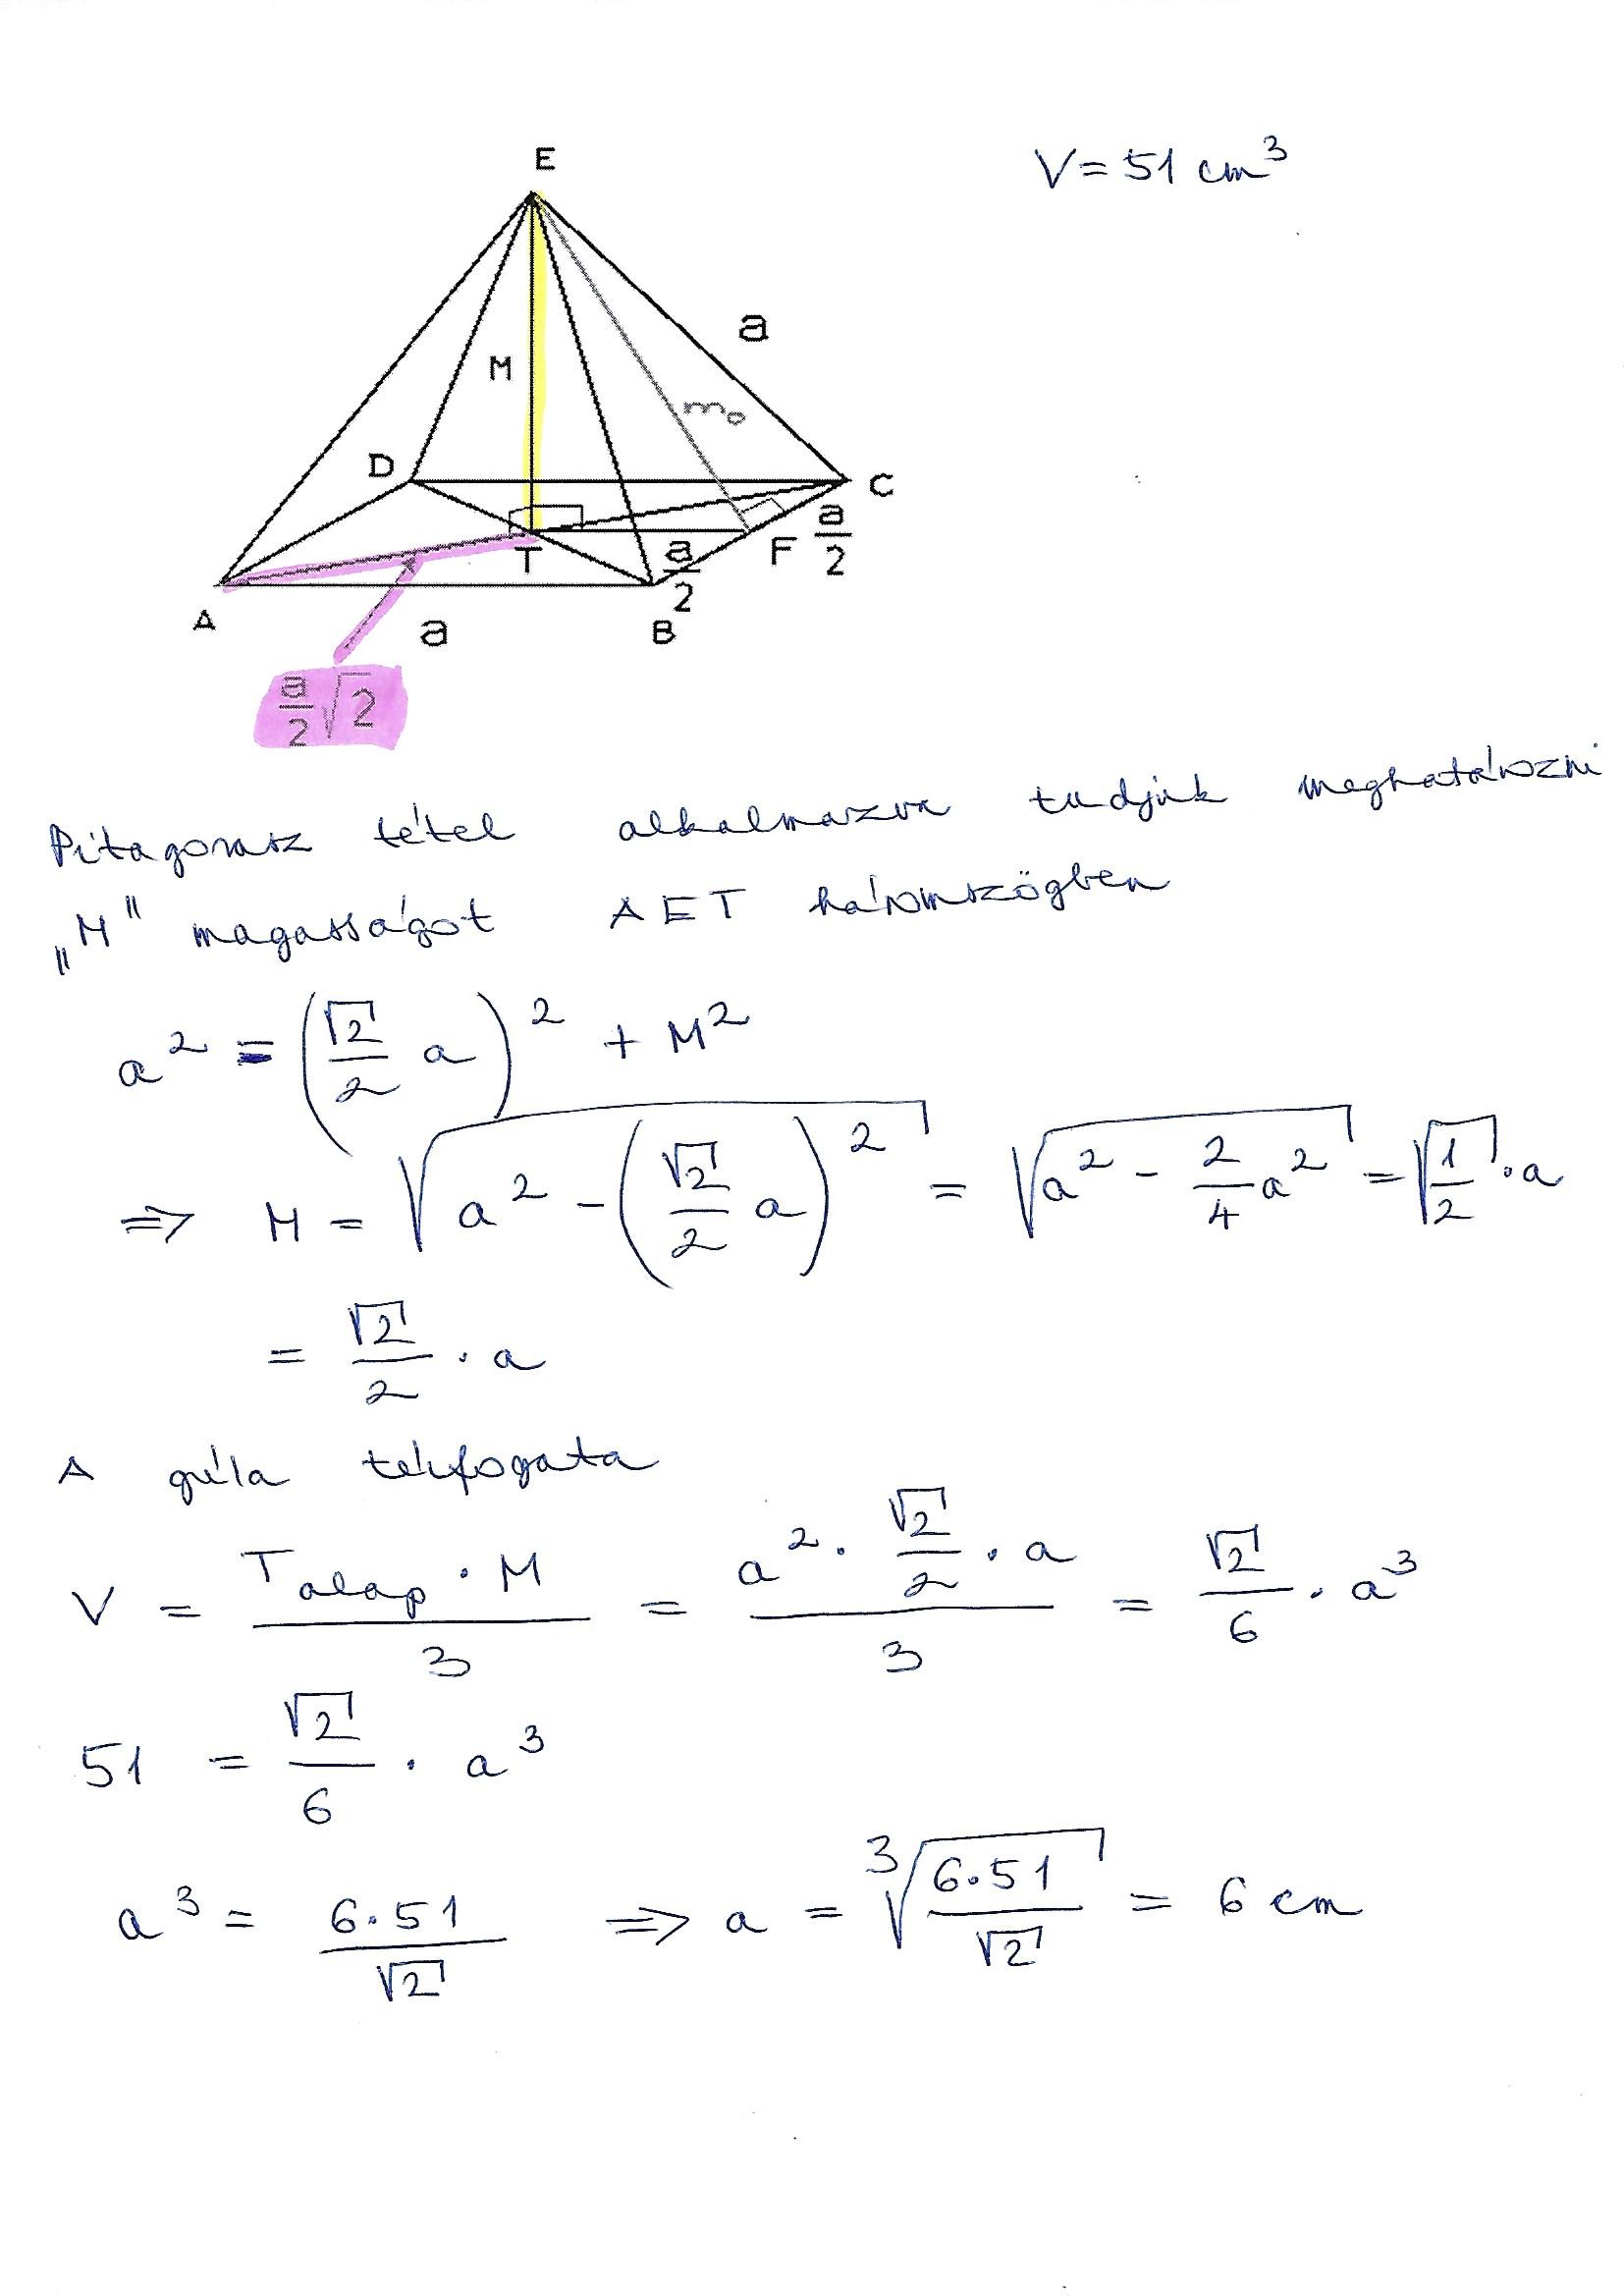 V = 51 cm³
E
a
M
m₀
D
C
a/2
T
a/2
F
A
a
B
a/2 √2
Pitagorasz tétel alkalmazva tudjuk meghatározni
„M" magasságot AET háromszögben
a² = (√2/2 a)² + M²
=> M = √(a² - (√2/2 a)²) = √(a² - 2/4 a²) = √(1/2) · a
= √2/2 · a
A gúla térfogata
V = (Talap · M)/3 = (a² · √2/2 · a)/3 = √2/6 · a³
51 = √2/6 · a³
a³ = 6·51/√2 => a = ³√(6·51/√2) = 6 cm